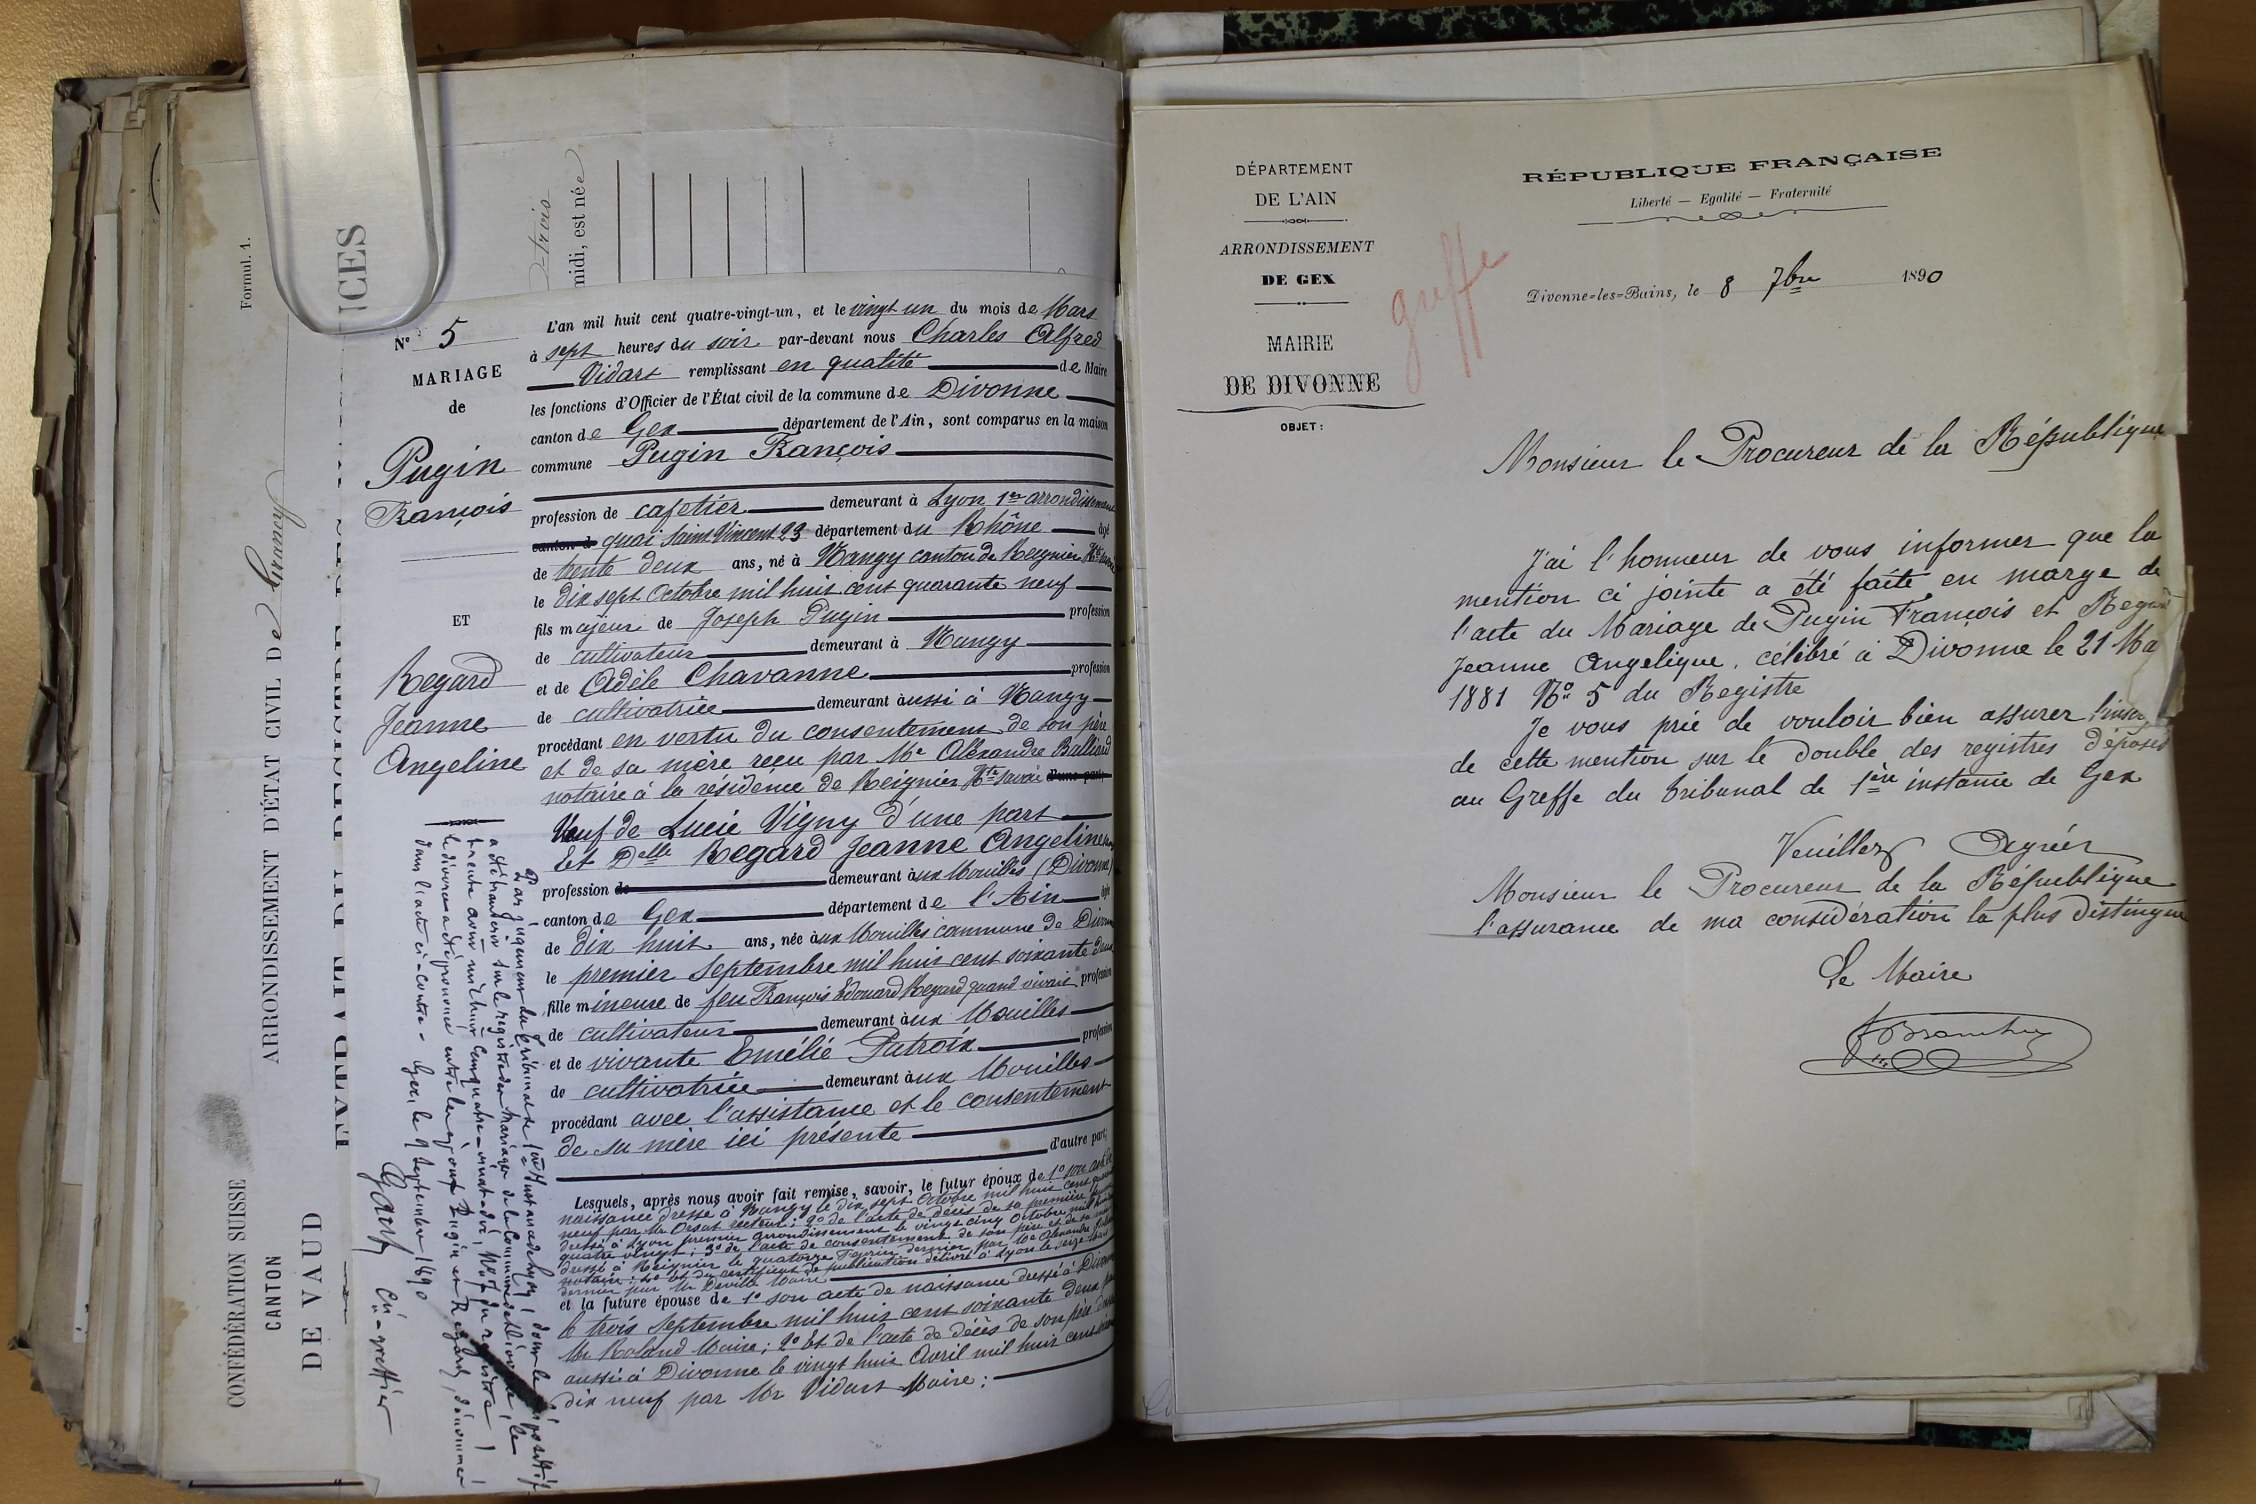 Formul. 1.
CONFÉDÉRATION SUISSE
CANTON
DE VAUD
ARRONDISSEMENT D'ÉTAT CIVIL De Grancy
midi, est née
N° 5
MARIAGE
de
Pugin
François
ET
Regard
Jeanne
Angeline
L'an mil huit cent quatre-vingt-un, et le vingt un du mois de Mars
à sept heures du soir par-devant nous Charles Alfred
Vidart remplissant en qualité de Maire
les fonctions d'Officier de l'État civil de la commune de Divonne
canton de Gex département de l'Ain, sont comparus en la maison
commune Pugin François
profession de cafetier demeurant à Lyon 1er arrondissement
canton d quai Saint Vincent 23 département du Rhône âgé
de trente deux ans, né à Nangy canton de Reignier Hte Savoie
le dix sept Octobre mil huit cent quarante neuf
fils majeur de Joseph Pugin profession
de cultivateur demeurant à Nangy
et de Adèle Chavanne profession
de cultivatrice demeurant aussi à Nangy
procédant en vertu du consentement de son père
et de sa mère reçu par Me Alexandre Balliard
notaire à la résidence de Reignier Hte Savoie d'une part;
Veuf de Lucie Vigny d'une part
Et Delle Regard Jeanne Angeline
profession de demeurant aux Mouilles (Divonne)
canton de Gex département de l'Ain âgée
de dix huit ans, née aux Mouilles commune de Divonne
le premier Septembre mil huit cent soixante deux
fille mineure de feu François Edouard Regard quand vivait profession
de cultivateur demeurant aux Mouilles
et de vivante Emélie Patroix profession
de cultivatrice demeurant aux Mouilles
procédant avec l'assistance et le consentement
de sa mère ici présente
d'autre part;
Lesquels, après nous avoir fait remise, savoir, le futur époux de 1° son acte de
naissance dressé à Nangy le dix sept Octobre mil huit cent quarante
neuf par Mr Orsat recteur; 2° de l'acte de décès de sa première femme
dressé à Lyon premier arrondissement le vingt cinq Octobre mil huit cent
quatre vingt; 3° de l'acte de consentement de son père et de sa mère
dressé à Reignier le quatorze Février dernier par Me Alexandre Balliard
notaire; 4° Et du certificat de publication délivré à Lyon le seize Mars
dernier par Mr Deville Maire
et la future épouse de 1° son acte de naissance dressé à Divonne
le trois Septembre mil huit cent soixante deux par
Mr Roland Maire; 2° Et de l'acte de décès de son père dressé
aussi à Divonne le vingt huit Avril mil huit cent soixante
dix neuf par Mr Vidart Maire;
Par jugement du Tribunal de 1ère Instance de Lyon, dont le dispositif
a été transcrit sur le registre des Mariages de la Commune de Divonne, le
trente août mil huit cent quatre-vingt-dix, N° 7 du registre,
le divorce a été prononcé entre les époux Pugin et Regard, dénommés
dans l'acte ci-contre - Gex, le 9 Septembre 1890
Cis-greffier
DÉPARTEMENT
DE L'AIN
ARRONDISSEMENT
DE GEX
MAIRIE
DE DIVONNE
OBJET:
greffe
RÉPUBLIQUE FRANÇAISE
Liberté — Egalité — Fraternité
Divonne=les=Bains, le 8 7bre 1890
Monsieur le Procureur de la République
J'ai l'honneur de vous informer que la
mention ci jointe a été faite en marge de
l'acte du Mariage de Pugin François et Regard
Jeanne Angelique, célébré à Divonne le 21 Ma
1881 No 5 du Registre
Je vous prie de vouloir bien assurer l'insc
de cette mention sur le double des registres déposés
au Greffe du tribunal de 1ère instance de Gex
Veuillez Agréer
Monsieur le Procureur de la République
l'assurance de ma considération la plus distingué
Le Maire